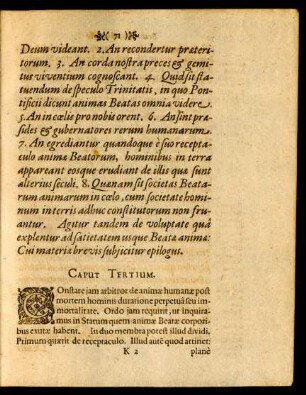 71
Deum videant. 2. An recondertur præteri-
torum. 3. An corda nostra preces & gemi-
tus viventium cognoscant. 4. Quid sit sta-
tuendum de speculo Trinitatis, in quo Pon-
tificii dicunt animas Beatas omnia videre.
5. An in cœlis pro nobis orent. 6. An sint præ-
sides & gubernatores rerum humanarum.
7. An egrediantur quandoque è suo recepta-
culo animæ Beatorum, hominibus in terra
appareant eosque erudiant de illis quæ sunt
alterius seculi. 8. Quænam sit societas Beata-
rum animarum in cœlo, cum societate homi-
num in terris adhuc constitutorum non fru-
antur. Agitur tandem de voluptate quâ
explentur ad satietatem usque Beatæ animæ:
Cui materia brevis subjicitur epilogus.
CAPUT TERTIUM.
COnstare jam arbitror de animæ humanæ post
mortem hominis duratione perpetuâ seu im-
mortalitate. Ordo jam requirit, ut inquira-
mus in Statum quem animæ Beatæ corpori-
bus exutæ habent. In duo membra potest illud dividi.
Primum quærit de receptaculo. Illud autē quod attinet:
K 2 planè